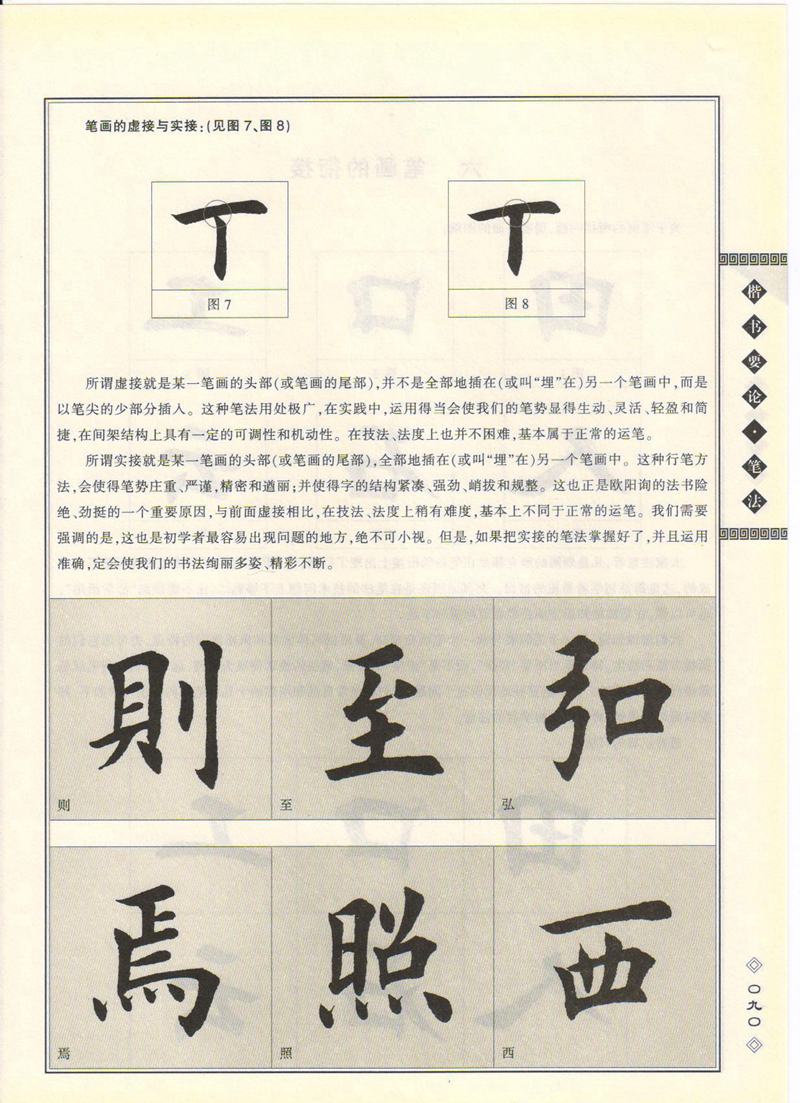 笔画的虚接与实接:(见图7、图8)
丁
丁
图7
图8
所谓虚接就是某一笔画的头部(或笔画的尾部),并不是全部地插在(或叫“埋”在)另一个笔画中,而是
以笔尖的少部分插入。这种笔法用处极广,在实践中,运用得当会使我们的笔势显得生动、灵活、轻盈和简
捷,在间架结构上具有一定的可调性和机动性。在技法、法度上也并不困难,基本属于正常的运笔。
所谓实接就是某一笔画的头部(或笔画的尾部),全部地插在(或叫“埋”在)另一个笔画中。这种行笔方
法,会使得笔势庄重、严谨,精密和遒丽;并使得字的结构紧凑、强劲、峭拔和规整。这也正是欧阳询的法书险
绝、劲挺的一个重要原因,与前面虚接相比,在技法、法度上稍有难度,基本上不同于正常的运笔。我们需要
强调的是,这也是初学者最容易出现问题的地方,绝不可小视。但是,如果把实接的笔法掌握好了,并且运用
准确,定会使我们的书法绚丽多姿、精彩不断。
則
至
弘
则
至
弘
焉
照
西
焉
照
西
楷书要论·笔法
〇九〇